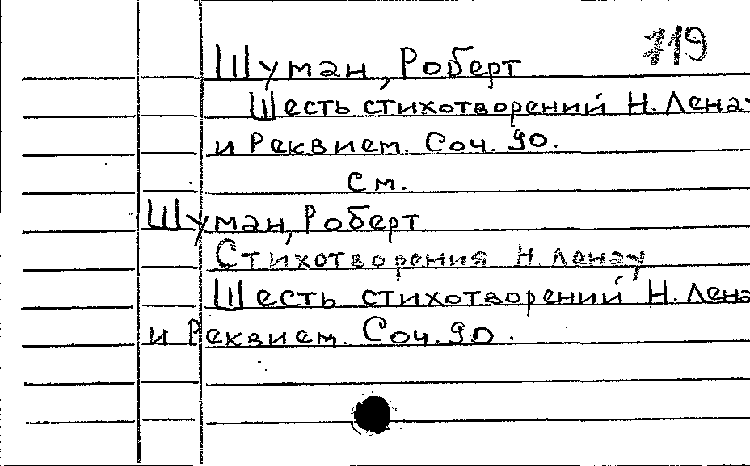 719
Шуман, Роберт
Шесть стихотворений Н. Лена
и Реквием. Соч. 90.
см.
Шуман, Роберт
Стихотворения Н. Ленау
Шесть стихотворений Н. Лена
и Реквием. Соч. 90.